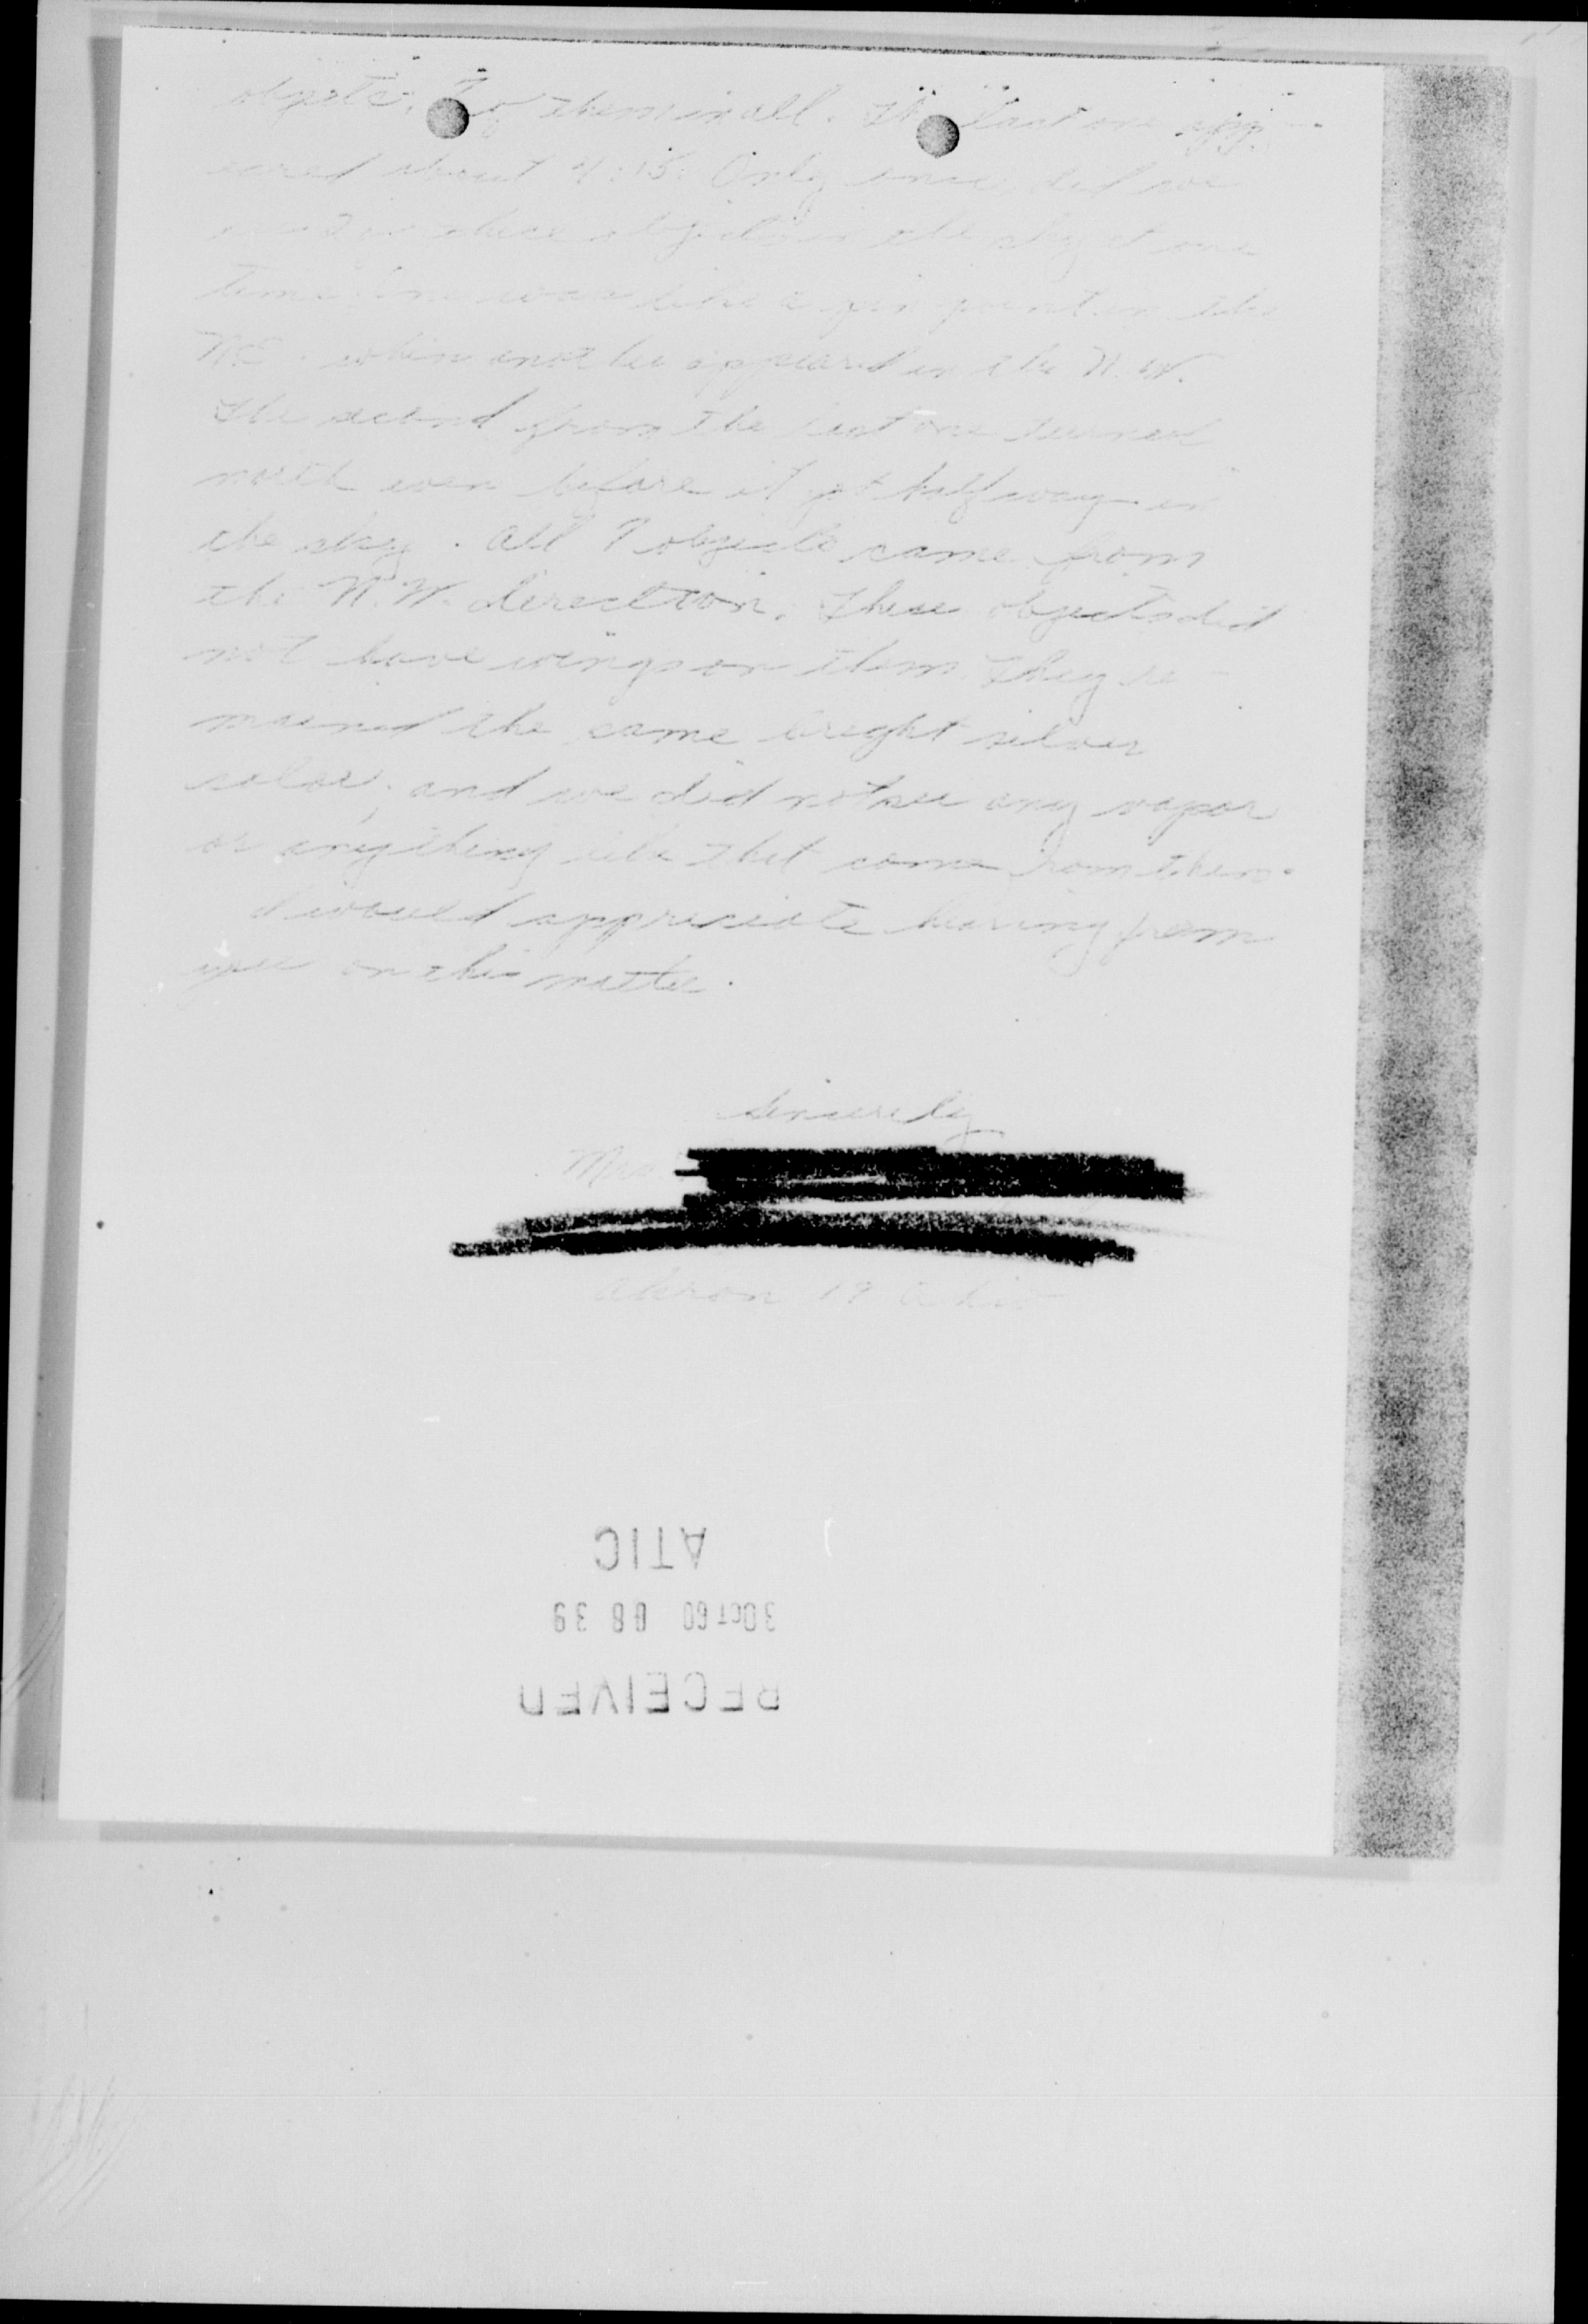 objects. 7 of them in all. The last one app-
eared about 4:15. Only once did we
see 2 of these objects in the sky at one
time. One was like a pin point in the
N.E. when another appeared in the N.W.
The second from the last one turned
north even before it got half way in
the sky. All 7 objects came from
the N.W. direction. These objects did
not have wings on them. They re-
mained the same bright silver
color, and we did not see any vapor
or anything like that come from them.
I would appreciate hearing from
you on this matter.
Sincerely
Mrs
Akron 19 Ohio
RECEIVED
3 OCT 60 08 39
ATIC